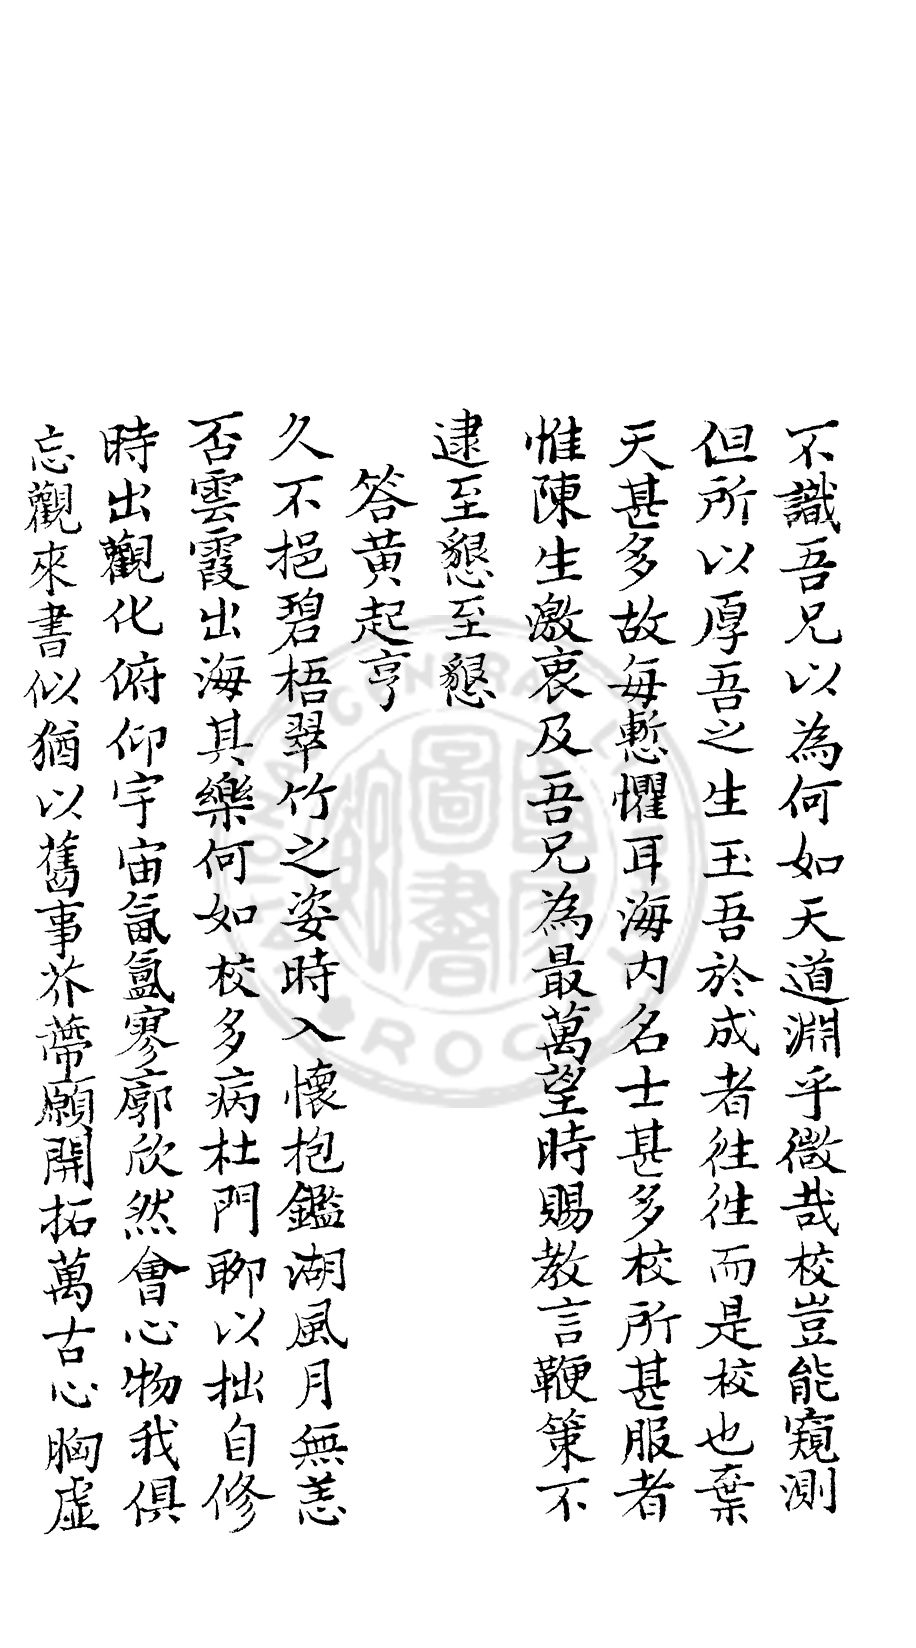 不識吾兄以為何如天道淵乎微哉校豈能窺測
但所以厚吾之生玉吾於成者徃徃而是校也棄
天甚多故每慙懼耳海内名士甚多校所甚服者
惟陳生激衷及吾兄為最萬望時賜教言鞭策不
逮至懇至懇
答黄起亨
久不挹碧梧翠竹之姿時入懷抱鑑湖風月無恙
否雲霞出海其樂何如校多病杜門聊以拙自修
時出觀化俯仰宇宙氤氲寥廓欣然會心物我俱
忘觀來書似猶以舊事芥蔕願開拓萬古心胸虛
圖書
GENERAL
ROC